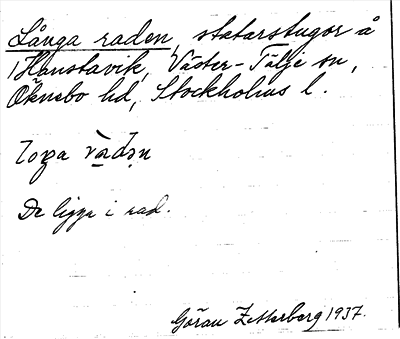 Långa raden, statarstugor å
Hanstavik, Väster-Tälje sn,
Öknebo hd, Stockholms l.
De ligga i rad.
Göran Zetterberg 1937.